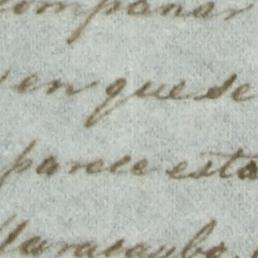 ompañar
en que se
parece esta
Maracaybo